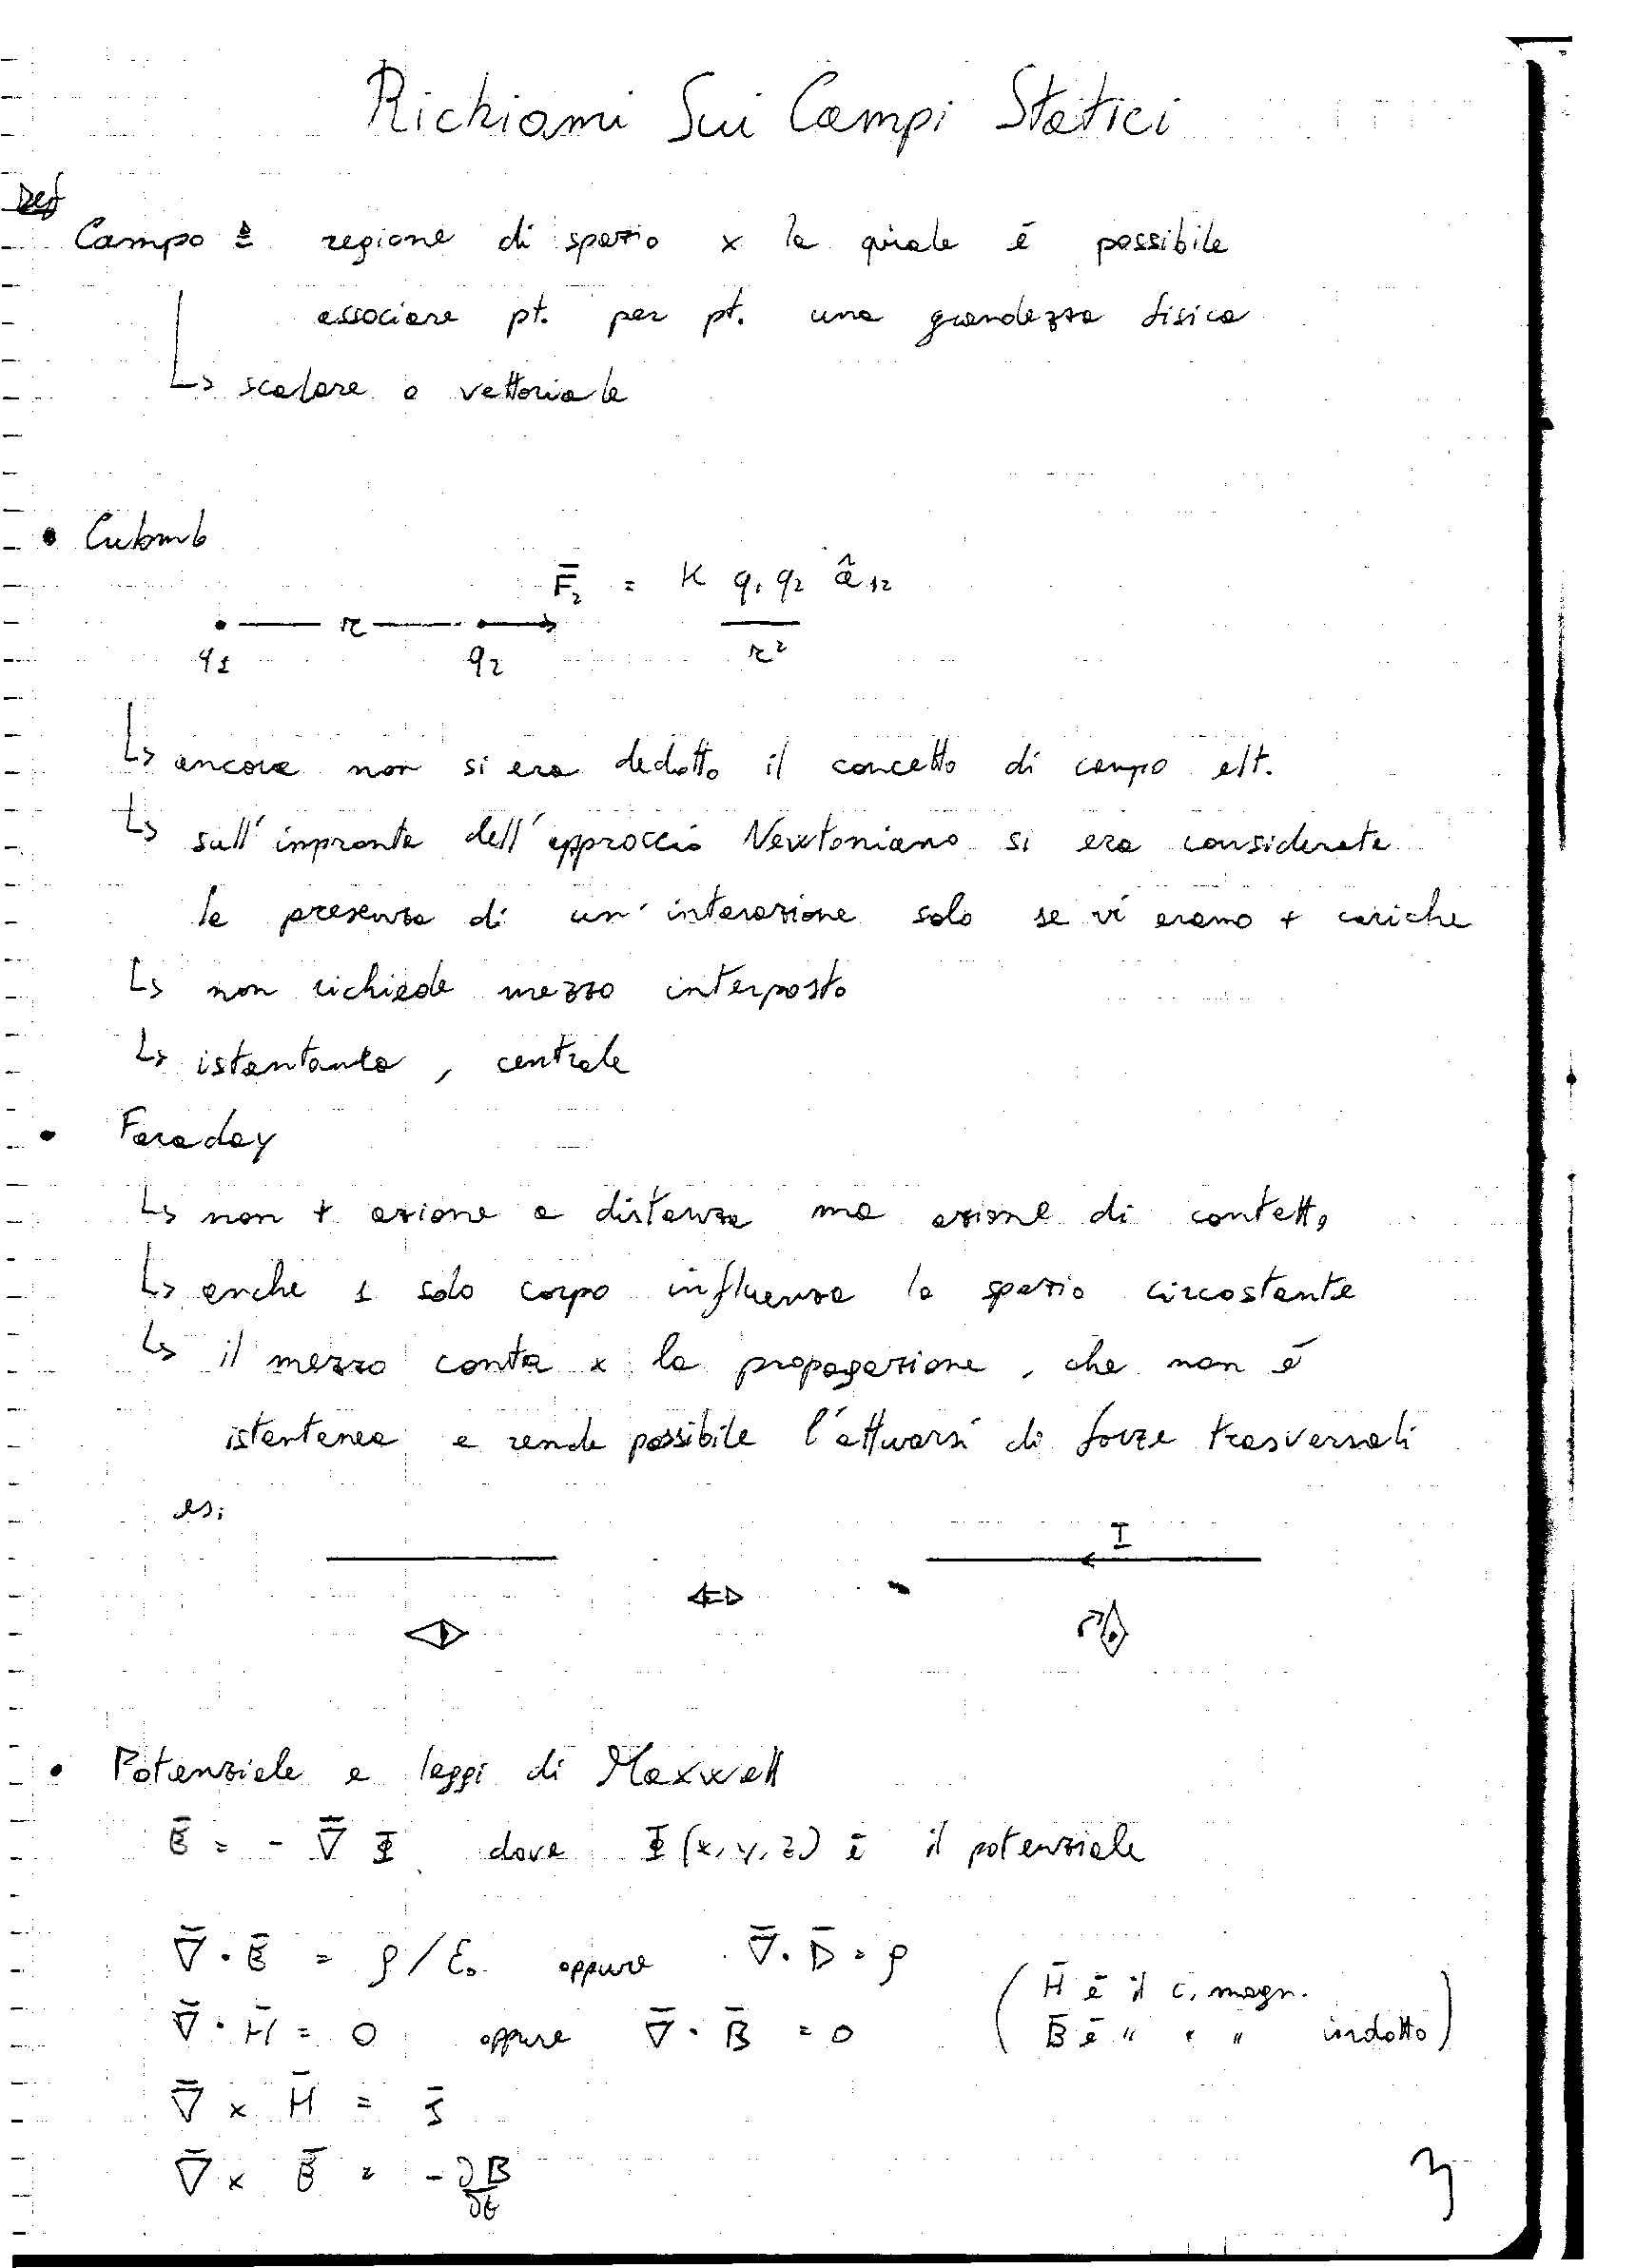 Richiami Sui Campi Statici
Def
Campo ≜ regione di spazio x la quale è possibile
associare pt. per pt. una grandezza fisica
↳ scalare o vettoriale
• Culomb
F̄₂ = K q₁ q₂ â₁₂
r
r²
q₁ q₂
↳ ancora non si era dedotto il concetto di campo elt.
↳ sull'impronta dell'approccio Newtoniano si era considerata
la presenza di un'interazione solo se vi erano + cariche
↳ non richiede mezzo interposto
↳ istantanea, centrale
• Faraday
↳ non + azione a distanza ma azione di contatto
↳ anche 1 solo corpo influenza lo spazio circostante
↳ il mezzo conta x la propagazione, che non è
istantanea e rende possibile l'attuarsi di forze trasversali
es:
I
⇔
• Potenziale e leggi di Maxwell
Ē = - ∇̄ Φ dove Φ(x,y,z) è il potenziale
∇̄ · Ē = ρ/ε₀ oppure ∇̄ · D̄ = ρ
(H̄ è il c. magn.
∇̄ · H̄ = 0 oppure ∇̄ · B̄ = 0
B̄ è " " " indotto)
∇̄ x H̄ = J̄
∇̄ x Ē = -∂B̄
∂t